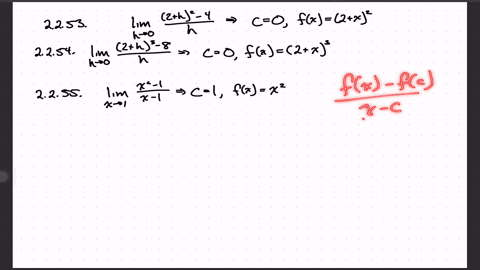 2.2.53. lim h→0 ((2+h)²-4)/h ⇒ c=0, f(x)=(2+x)²
2.2.54. lim h→0 ((2+h)³-8)/h ⇒ c=0, f(x)=(2+x)³
2.2.55. lim x→1 (x²-1)/(x-1) ⇒ c=1, f(x)=x²
(f(x)-f(c))/(x-c)